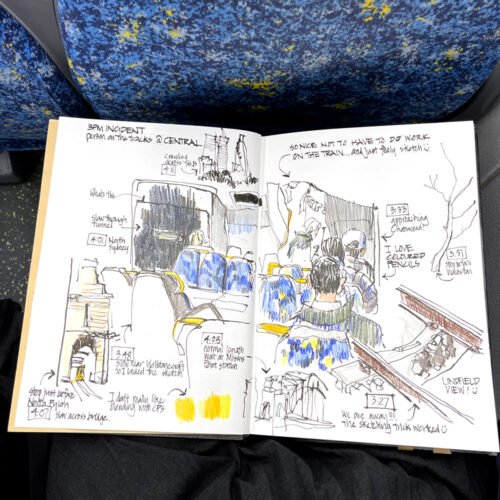 3PM INCIDENT
person on the tracks @ CENTRAL
crawling
4:11
slow through
tunnel
4:01 North
Sydney
3:48
to I linked the sketch!
4:05
normal length
wait at Milsons
Point station
stop just before
North
4:07 slow across bridge
I don't really like
blending with CPs
SO NICE NOT TO HAVE TO DO WORK
ON THE TRAIN... and just freely sketch
3:33
approaching
Chatswood!
I LOVE
COLOURED
PENCILS
3:51
LINDFIELD
VIEW!
3:27
We are away!!!
the sketching trick worked